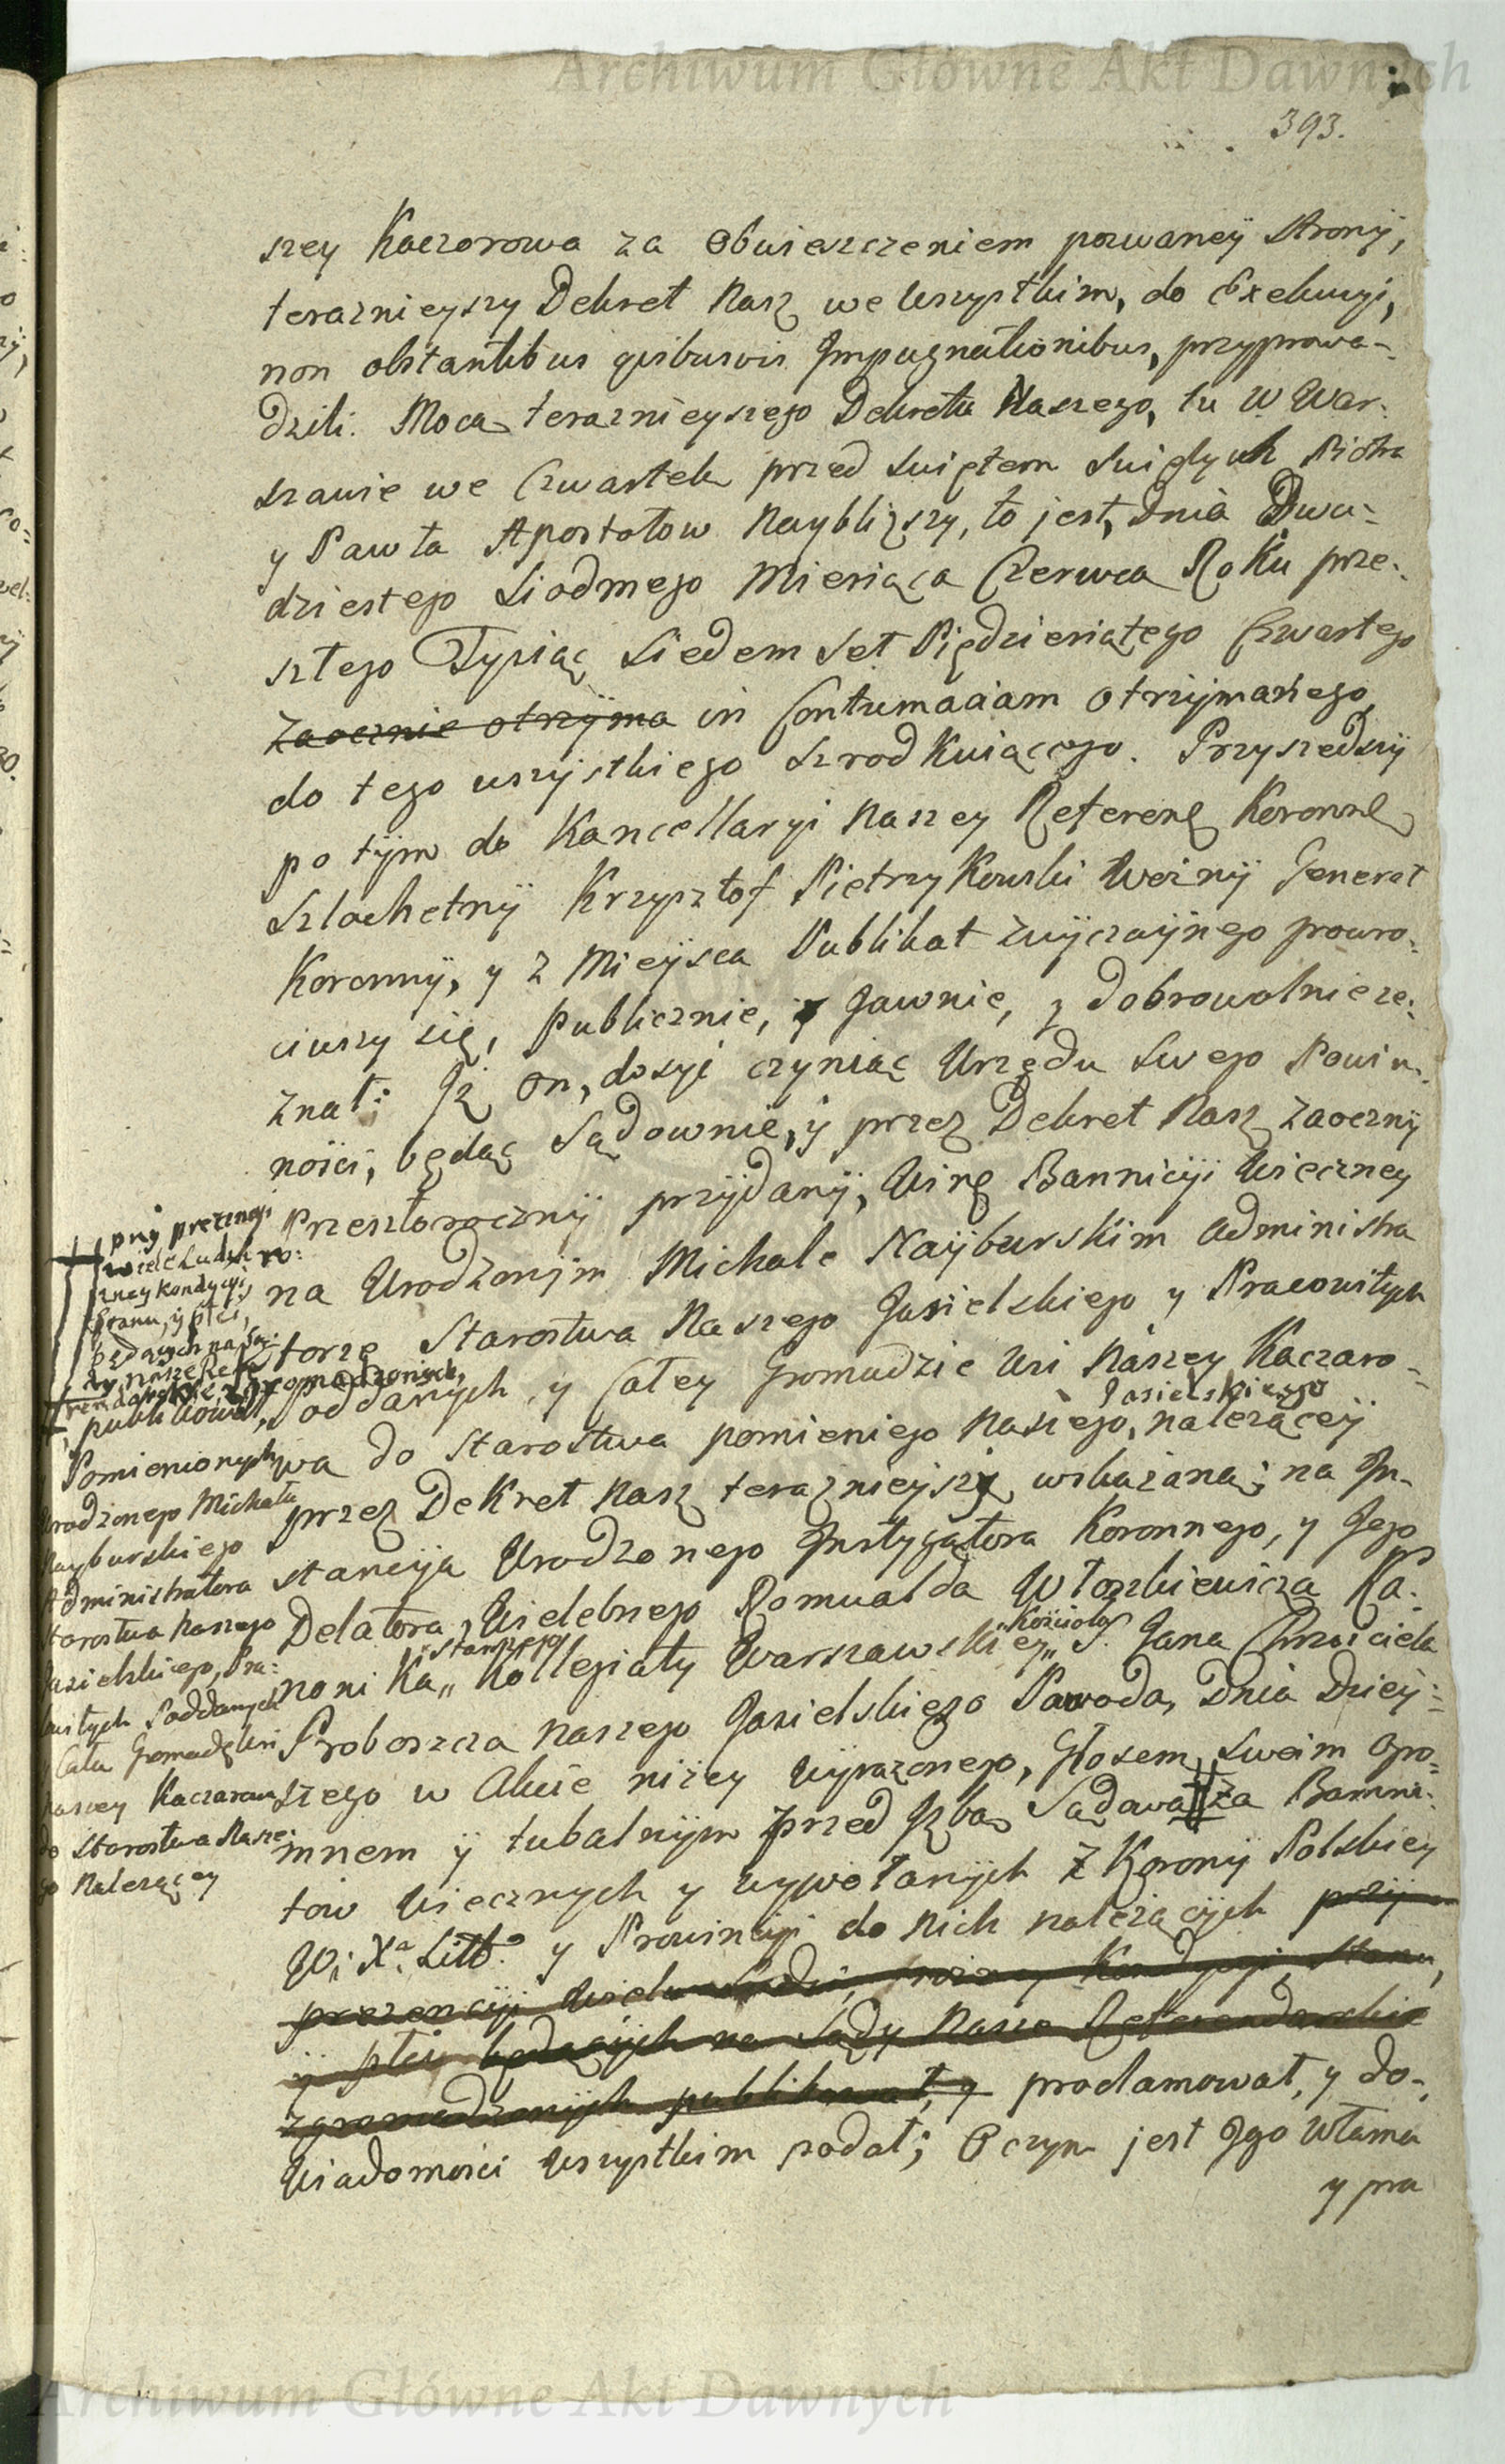 Archiwum Główne Akt Dawnych
393.
szey Kaczorowa za Obwieszczeniem pozwaneÿ stronÿ,
teraznieyszy Dekret Nasz we wszystkim, do Exekucyi,
non obstantibus quibusvis Impugnationibus, przyprowa-
dzili. Mocą teraznieyszego Dekretu Naszego, tu w War:
szawie we Czwartek przed Swiętem Swiętych Piotra
y Pawła Apostołow Naybliższy, to jest, Dnia Dwu-
dziestego Siodmego Miesiąca Czerwca Roku prze:
szłego Tysiąc Siedem Set Piędziesiątego Czwartego
zaocznie otrzÿma in Contumaciam otrzÿmanego
do tego wszÿstkiego szrodkuiącego. Przyszedszÿ
po tÿm do Kancellaryi Naszey Referenę Koronnę
Szlachetnÿ Krzysztof Pietrzykowski Woznÿ Generał
Koronnÿ, y z Mieÿsca Publikat zwÿczaÿnego powro:
ciwszy się, Publicznie, y Jawnie, y Dobrowolnie ze:
znał: Jż on, dosyć czyniąc Urzędu swego Powin:
ności, będąc Sądownie, ÿ przez Dekret Nasz zaocznÿ
Przeszłorocznÿ przÿdanÿ, Winę Bannicÿi Wieczney
na Urodzonÿm Michale Naÿburskim Administra
torze Starostwa Naszego Jasielskiego y Pracowitych
Poddanych, y Całey Gromadzie Wsi Naszey Kaczaro-
Jasielskiego
wa do Starostwa pomieniego Naszego, należąceÿ
przez Dekret Nasz teraznieyszy wskazaną; na In-
stancÿą Urodzonego Instygatora Koronnego, y Jego
Delatora, Wielebnego Romualda Włoszkiewicza Ka:
Kościoła
nonika Kollegiaty Warszawskiey S. Jana Chrzciciela
Proboszcza Naszego Jasielskiego Powoda, Dnia Dzieÿ:
szego w Akcie niżey wÿrażonego, Głosem swoim ogro:
mnem ÿ tubalnÿm przed Jzbą Sądową za Banni:
tow Wiecznych y wywołanÿch z Koronÿ Polskiey
W: Xa. Litto. y Prowincÿi do nich należącÿch przÿ
prezencÿi wielu Ludzi, rożney Kondycÿi, Stanu,
ÿ płci będącÿch na Sądy Nasze Referendarskie
zgromadzonÿch publikował, y proclamował, y do-
wiadomości wszystkim podał; O czym jest Jego własna
y pra
przÿ prezencÿi
wiele Ludzi ro:
zney kondycÿi,
Stanu, ÿ płci,
będących na Są:
dy nasze Refe
rendarskie zgromadzonÿch,
publikował,
Pomienionych
Urodzonego Michała
Nayburskiego
Administratora
Starostwa Naszego
Jasielskiego, Pra:
cowitych Poddanych
Całą Gromadę Wsi
Naszey Kaczarow
do Starostwa Nasze:
go Należącey
Archiwum Główne Akt Dawnych